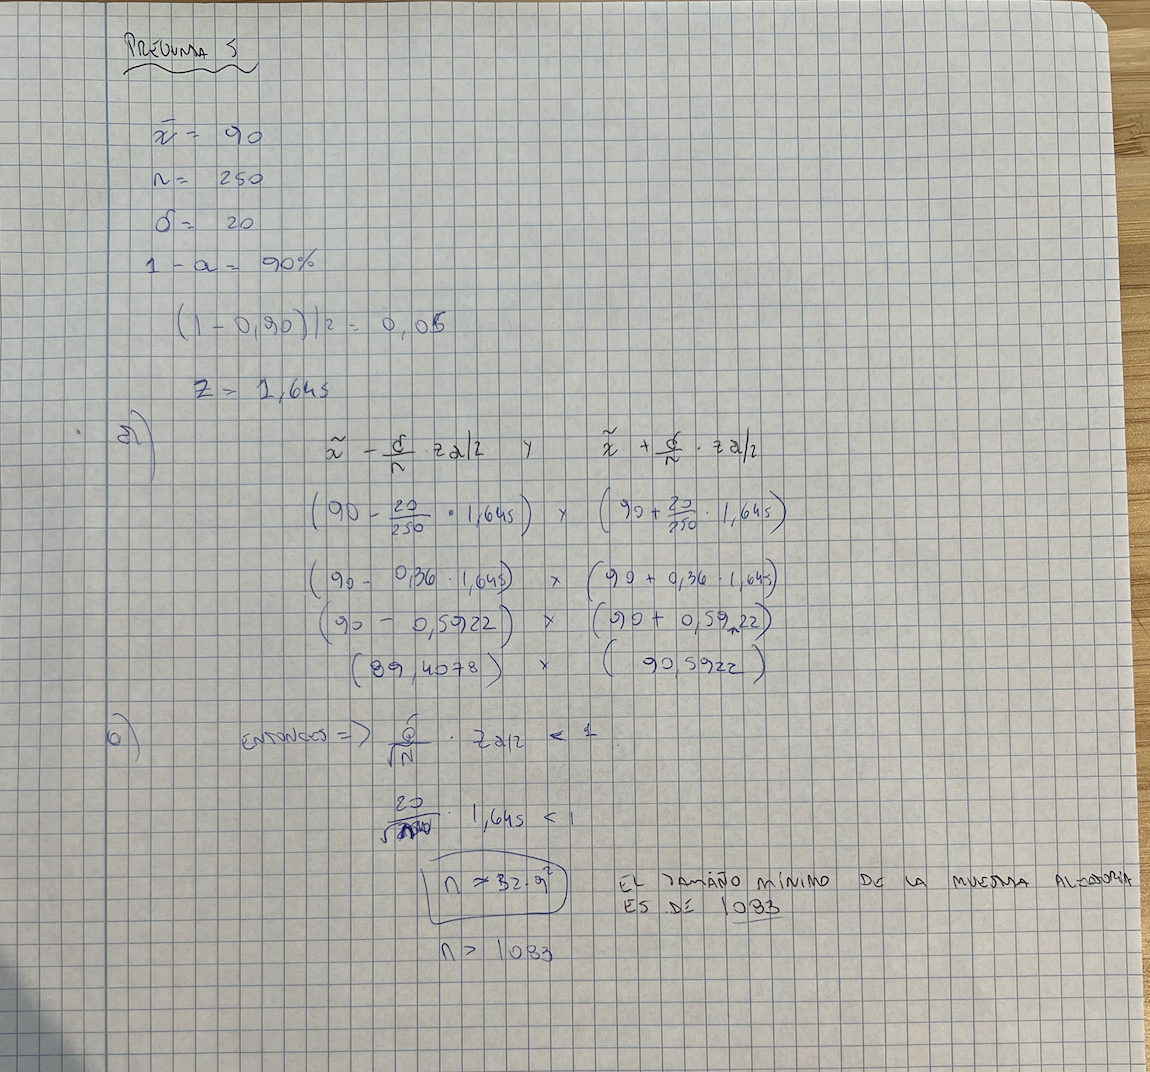 PREGUNTA 5
x̄ = 90
n = 250
σ = 20
1 - α = 90%
(1 - 0,90)/2 = 0,05
z = 1,645
a)
x̃ - σ/n · zα/2 y x̃ + σ/n · zα/2
(90 - 20/250 · 1,645) y (90 + 20/250 · 1,645)
(90 - 0,36 · 1,645) y (90 + 0,36 · 1,645)
(90 - 0,5922) y (90 + 0,5922)
(89,4078) y (90,5922)
b) ENTONCES => σ/√n · zα/2 < 1
20/√n · 1,645 < 1
n > 32.9² EL TAMAÑO MÍNIMO DE LA MUESTRA ALEATORIA
ES DE 1083
n > 1083